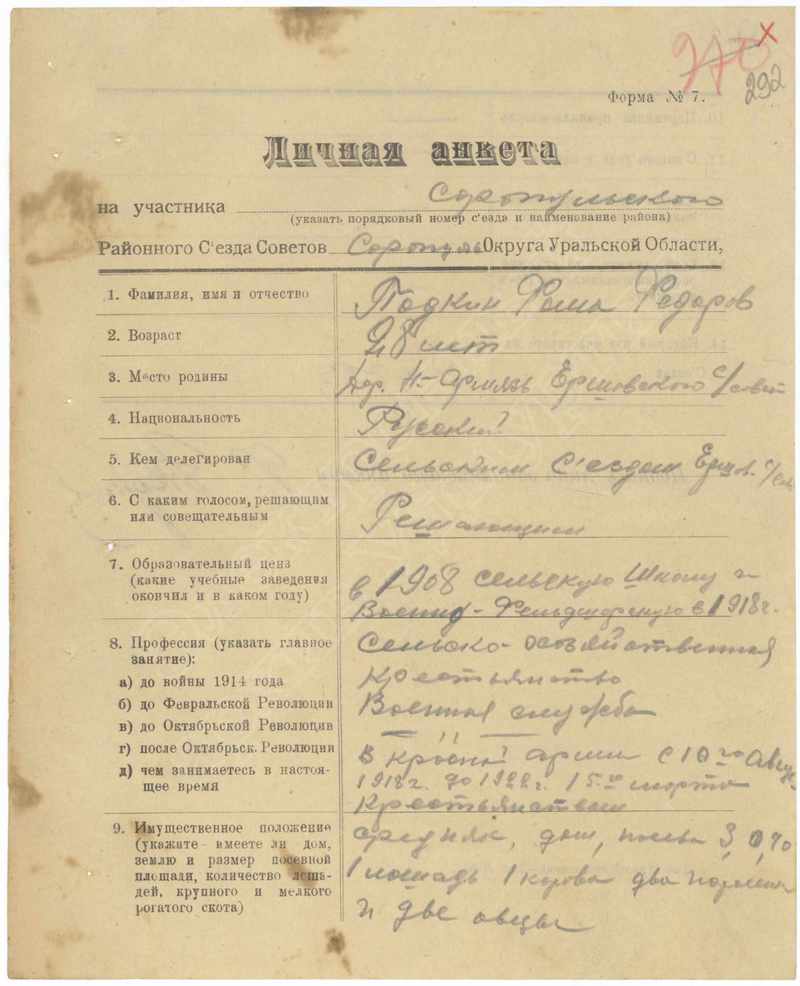 270 x
292
Форма № 7.
Личная анкета
на участника Сарапульского
(указать порядковый номер с'езда и наименование района)
Районного С'езда Советов Сарапуль Округа Уральской Области,
1. Фамилия, имя и отчество Подкин Фома Федоров
2. Возраст 28 лет
3. Место родины дер. Н-Армязь Ершовского с/совет
4. Национальность Русский
5. Кем делегирован Сельским с'ездом Ершов. с/сов
6. С каким голосом, решающим
или совещательным Решающим
7. Образовательный ценз
(какие учебные заведения
окончил и в каком году)
в 1908 сельскую школу и
Военно-Фельдшерскую в 1918 г.
8. Профессия (указать главное
занятие):
а) до войны 1914 года
б) до Февральской Революции
в) до Октябрьской Революции
г) после Октябрьск. Революции
д) чем занимаетесь в настоя-
щее время
Сельско-хозяйственная
Крестьянство
Военная служба
— " —
в красной армии с 10го Авгус.
1918 г. до 1922 г. 15го марта
Крестьянством
9. Имущественное положение
(укажате - имеете ли дом,
землю и размер посевной
площади, количество лоша-
дей, крупного и мелкого
рогатого скота)
средняк, дом, посева 3,
1 лошадь 1 корова два
и две овцы